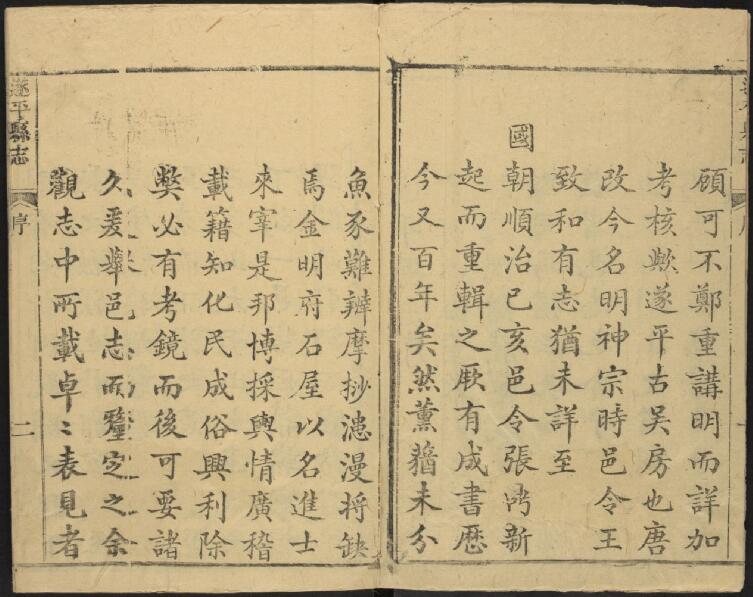 顧可不鄭重講明而詳加
考核歟遂平古吳房也唐
改今名明神宗時邑令王
致和有志猶未詳至
國朝順治己亥邑令張鼎新
起而重輯之厥有成書歷
今又百年矣然薰蕕未分
魚豕難辨摩挱漶漫將缺
焉金明府石屋以名進士
來宰是邦博採輿情廣稽
載籍知化民成俗興利除
獘必有考鏡而後可要諸
久爰舉邑志而釐定之余
觀志中所載卓〻表見者
遂平縣志
序
二